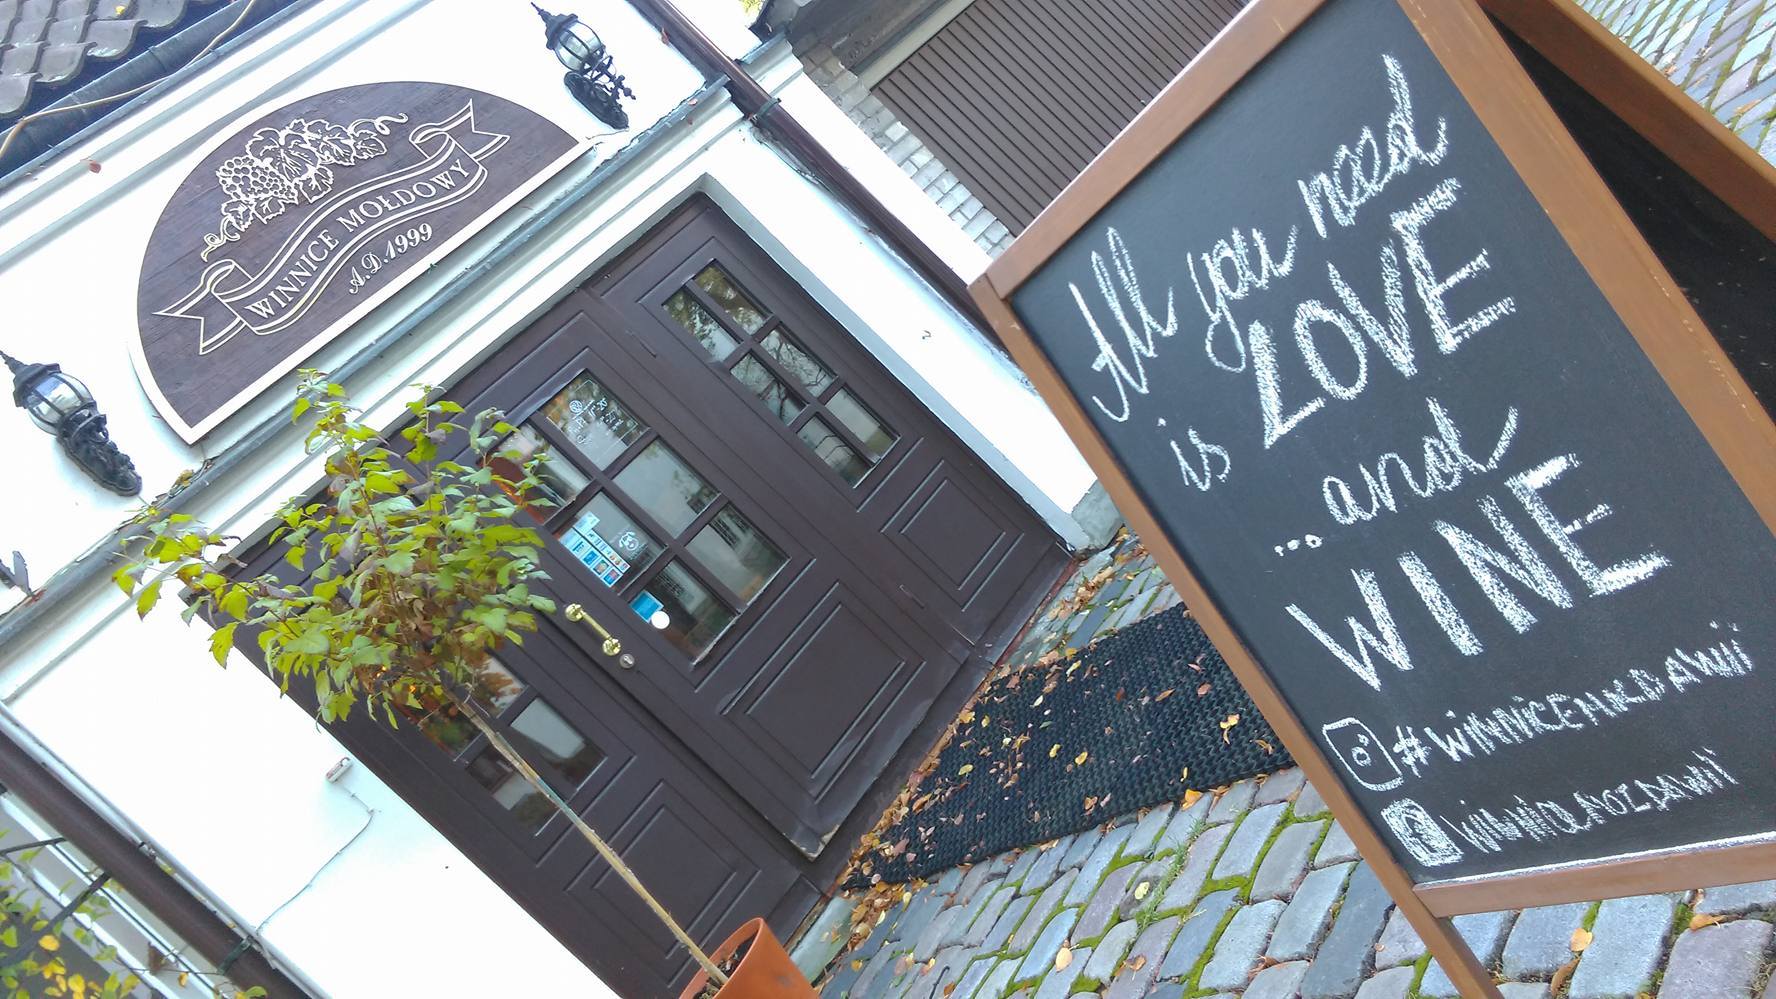 WINNICE MOŁDOWY
A.D. 1999
All you need
is LOVE
...and
WINE